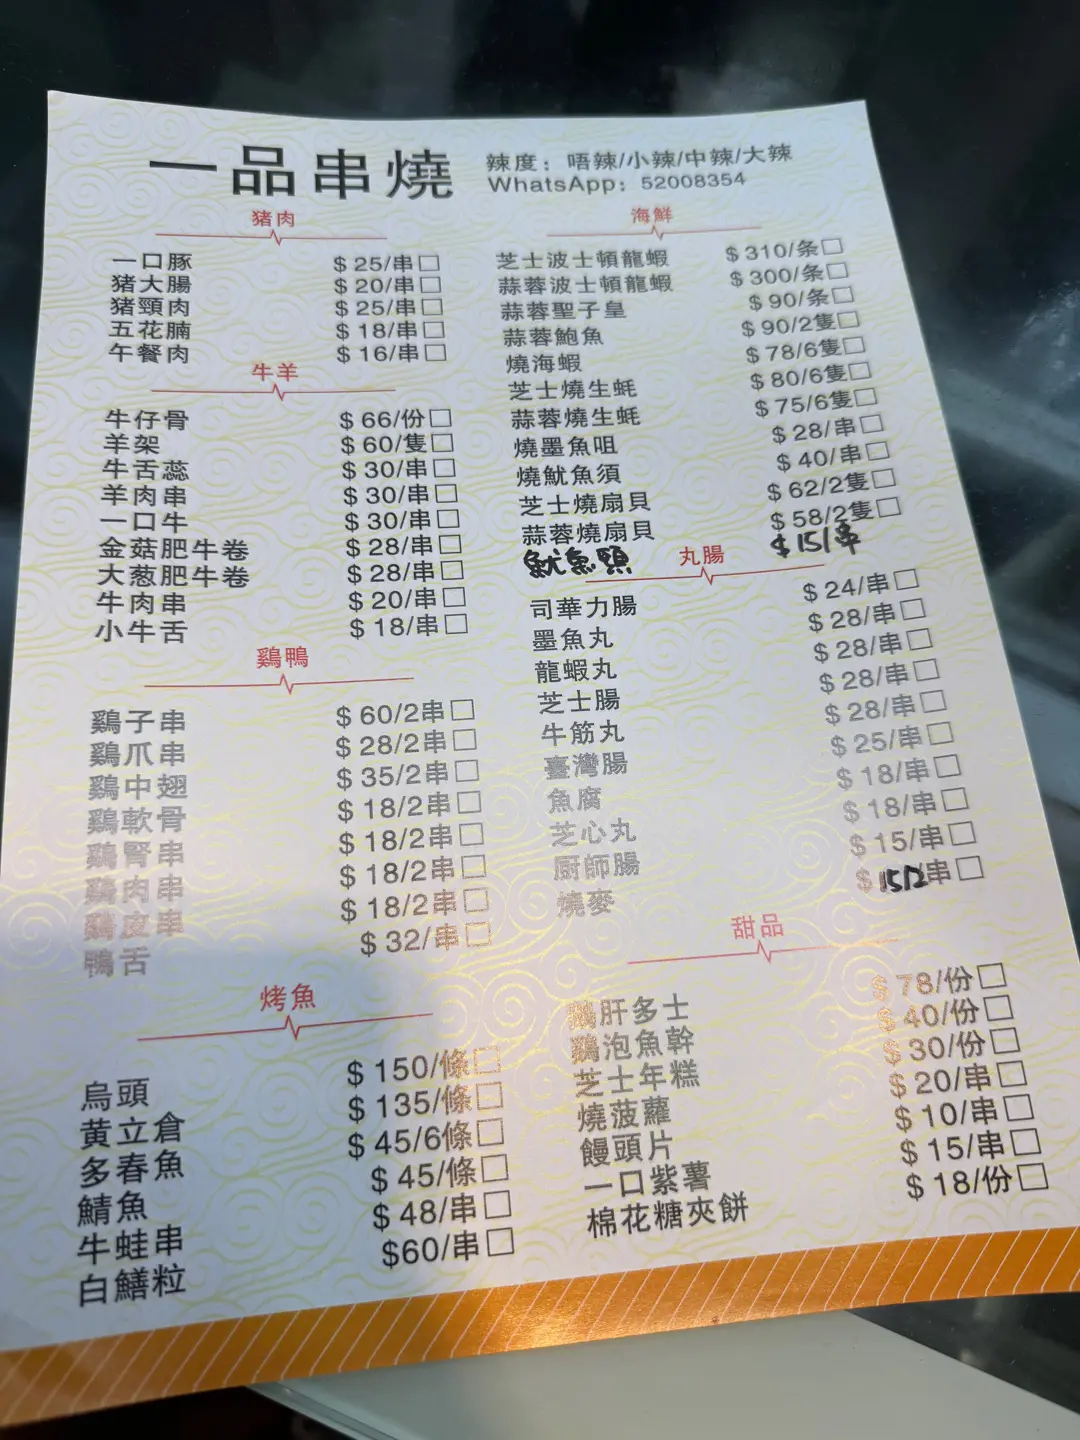 一品串燒
辣度：唔辣/小辣/中辣/大辣
WhatsApp：52008354
猪肉
一口豚 $25/串□
猪大腸 $20/串□
猪頸肉 $25/串□
五花腩 $18/串□
午餐肉 $16/串□
牛羊
牛仔骨 $66/份□
羊架 $60/隻□
牛舌蕊 $30/串□
羊肉串 $30/串□
一口牛 $30/串□
金菇肥牛卷 $28/串□
大葱肥牛卷 $28/串□
牛肉串 $20/串□
小牛舌 $18/串□
鷄鴨
鷄子串 $60/2串□
鷄爪串 $28/2串□
鷄中翅 $35/2串□
鷄軟骨 $18/2串□
鷄腎串 $18/2串□
鷄肉串 $18/2串□
鷄皮串 $18/2串□
鴨舌 $32/串□
烤魚
烏頭 $150/條□
黄立倉 $135/條□
多春魚 $45/6條□
鯖魚 $45/條□
牛蛙串 $48/串□
白鱔粒 $60/串□
海鮮
芝士波士頓龍蝦 $310/条□
蒜蓉波士頓龍蝦 $300/条□
蒜蓉聖子皇 $90/条□
蒜蓉鮑魚 $90/2隻□
燒海蝦 $78/6隻□
芝士燒生蚝 $80/6隻□
蒜蓉燒生蚝 $75/6隻□
燒墨魚咀 $28/串□
燒魷魚須 $40/串□
芝士燒扇貝 $62/2隻□
蒜蓉燒扇貝 $58/2隻□
魷魚頭 $15/串
丸腸
司華力腸 $24/串□
墨魚丸 $28/串□
龍蝦丸 $28/串□
芝士腸 $28/串□
牛筋丸 $28/串□
臺灣腸 $25/串□
魚腐 $18/串□
芝心丸 $18/串□
厨師腸 $15/串□
燒麥 $15/2串□
甜品
鵝肝多士 $78/份□
鷄泡魚幹 $40/份□
芝士年糕 $30/份□
燒菠蘿 $20/串□
饅頭片 $10/串□
一口紫薯 $15/串□
棉花糖夾餅 $18/份□